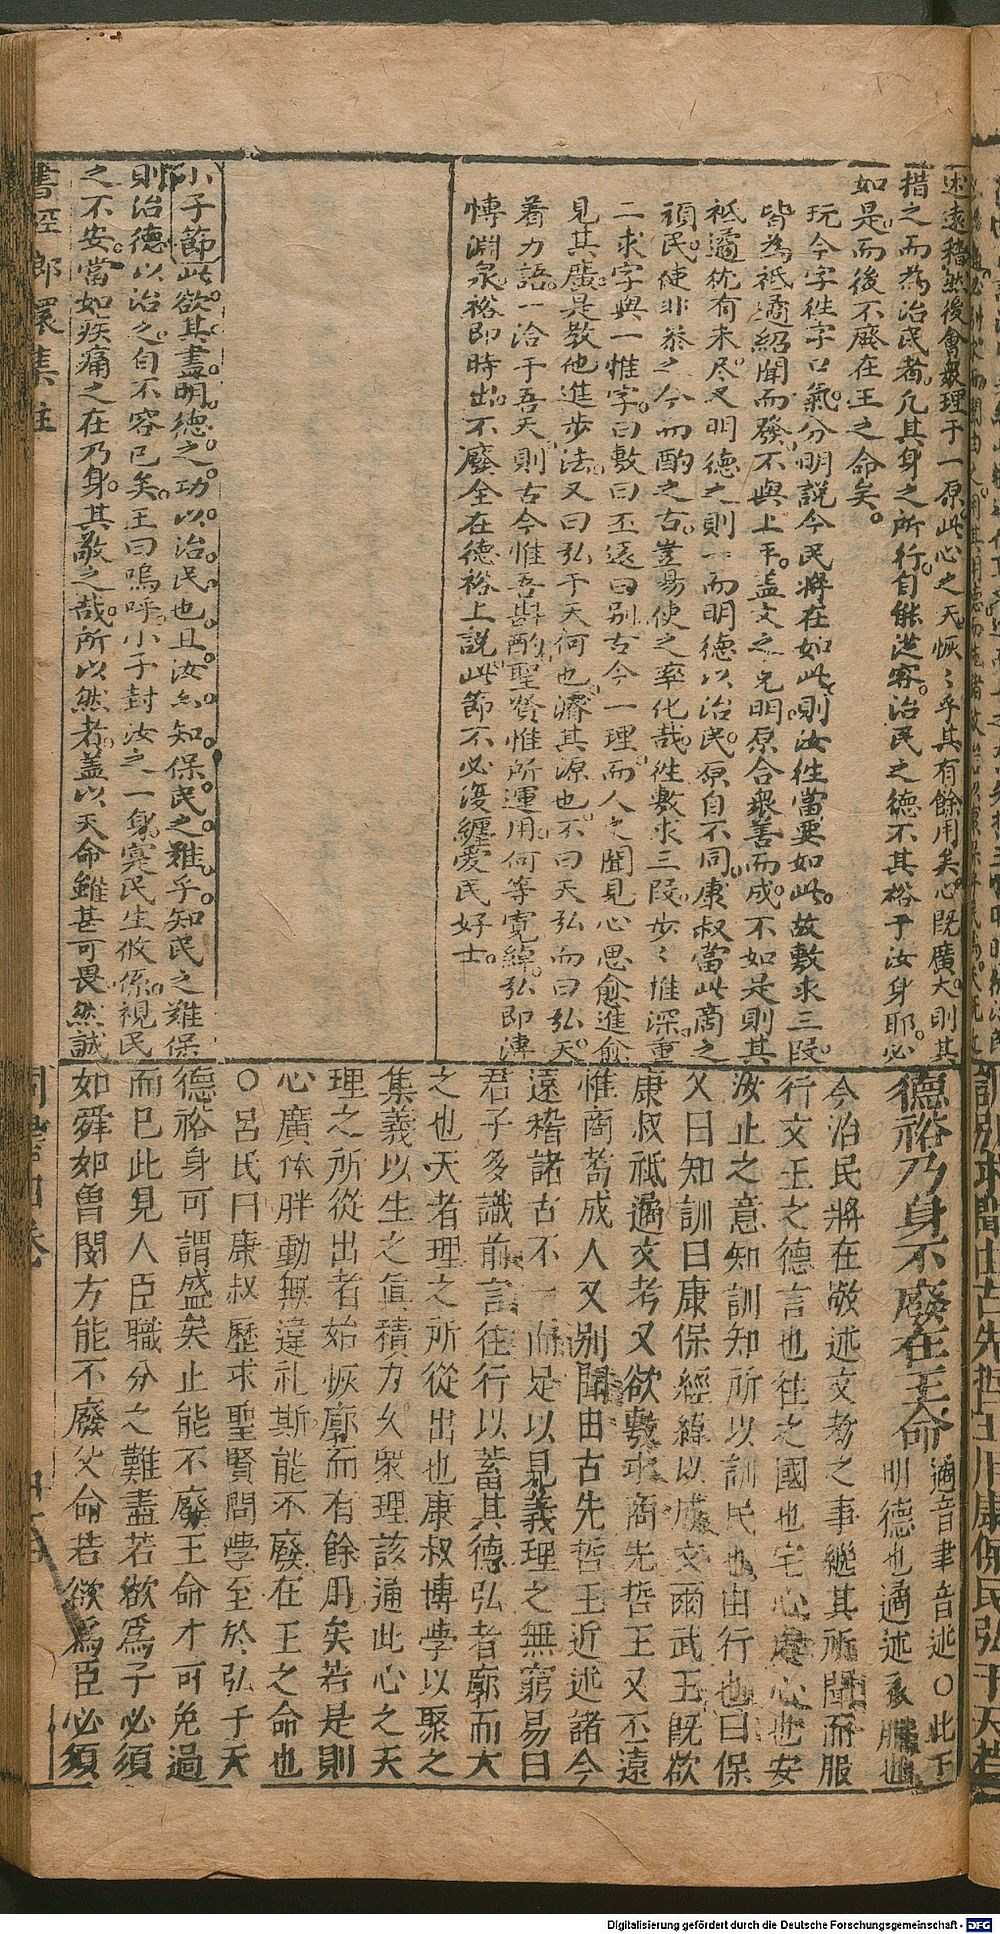 述遠稽然後會衆理于一原此心之天恢〻乎其有餘用矣心既廣大則其
措之而為治民者凡其身之所行自能從容治民之德不其裕于汝身耶必
如是而後不廢在王之命矣
玩今字徃字口氣分明説今民將在如此則汝徃當要如此故敷求三段
皆為祗遹紹聞而發不與上平盖文之克明原合衆善而成不如是則其
祗遹猶有未尽又明德之則一而明德以治民原自不同康叔當此商之
頑民使非叅之今而酌之古豈易使之率化哉徃敷求三段步〻推深重
二求字與一惟字曰敷曰丕遠曰别古今一理而人之聞見心思愈進愈
見其廣是教他進步法又曰弘于天何也濬其源也不曰天弘而曰弘天
着力語一洽于吾天則古今惟吾斟酌聖賢惟所運用何等寛綽弘即溥
博淵泉裕即時出不廢全在德裕上説此節不必復纏愛民好士
小子節此欲其盡明德之功以治民也且汝亦知保民之難乎知民之難保
則治德以治之自不容已矣王曰嗚呼小子封汝之一身寔民生攸係視民
之不安當如疾痛之在乃身其敬之哉所以然者盖以天命雖甚可畏然誠
德裕乃身不廢在王命 遹音聿音述○此下
明德也遹述衣服也
今治民將在敬述文考之事繼其所聞而服
行文王之德言也往之國也宅心處心也安
汝止之意知訓知所以訓民也由行也曰保
乂曰知訓曰康保經緯以成文爾武王既欲
康叔祗遹文考又欲敷求商先哲王又丕遠
惟商耇成人又别聞由古先哲王近述諸今
遠稽諸古不一而足以見義理之無窮易曰
君子多識前言往行以蓄其德弘者廓而大
之也天者理之所從出也康叔博學以聚之
集義以生之眞積力久衆理該通此心之天
理之所從出者始恢廓而有餘用矣若是則
心廣体胖動無違礼斯能不廢在王之命也
○呂氏曰康叔歷求聖賢問學至於弘于天
德裕身可謂盛矣止能不廢王命才可免過
而已此見人臣職分之難盡若欲爲子必須
如舜如曽閔方能不廢父命若欲爲臣必須
書經郎環集註
周書四卷
Digitalisierung gefördert durch die Deutsche Forschungsgemeinschaft - DFG